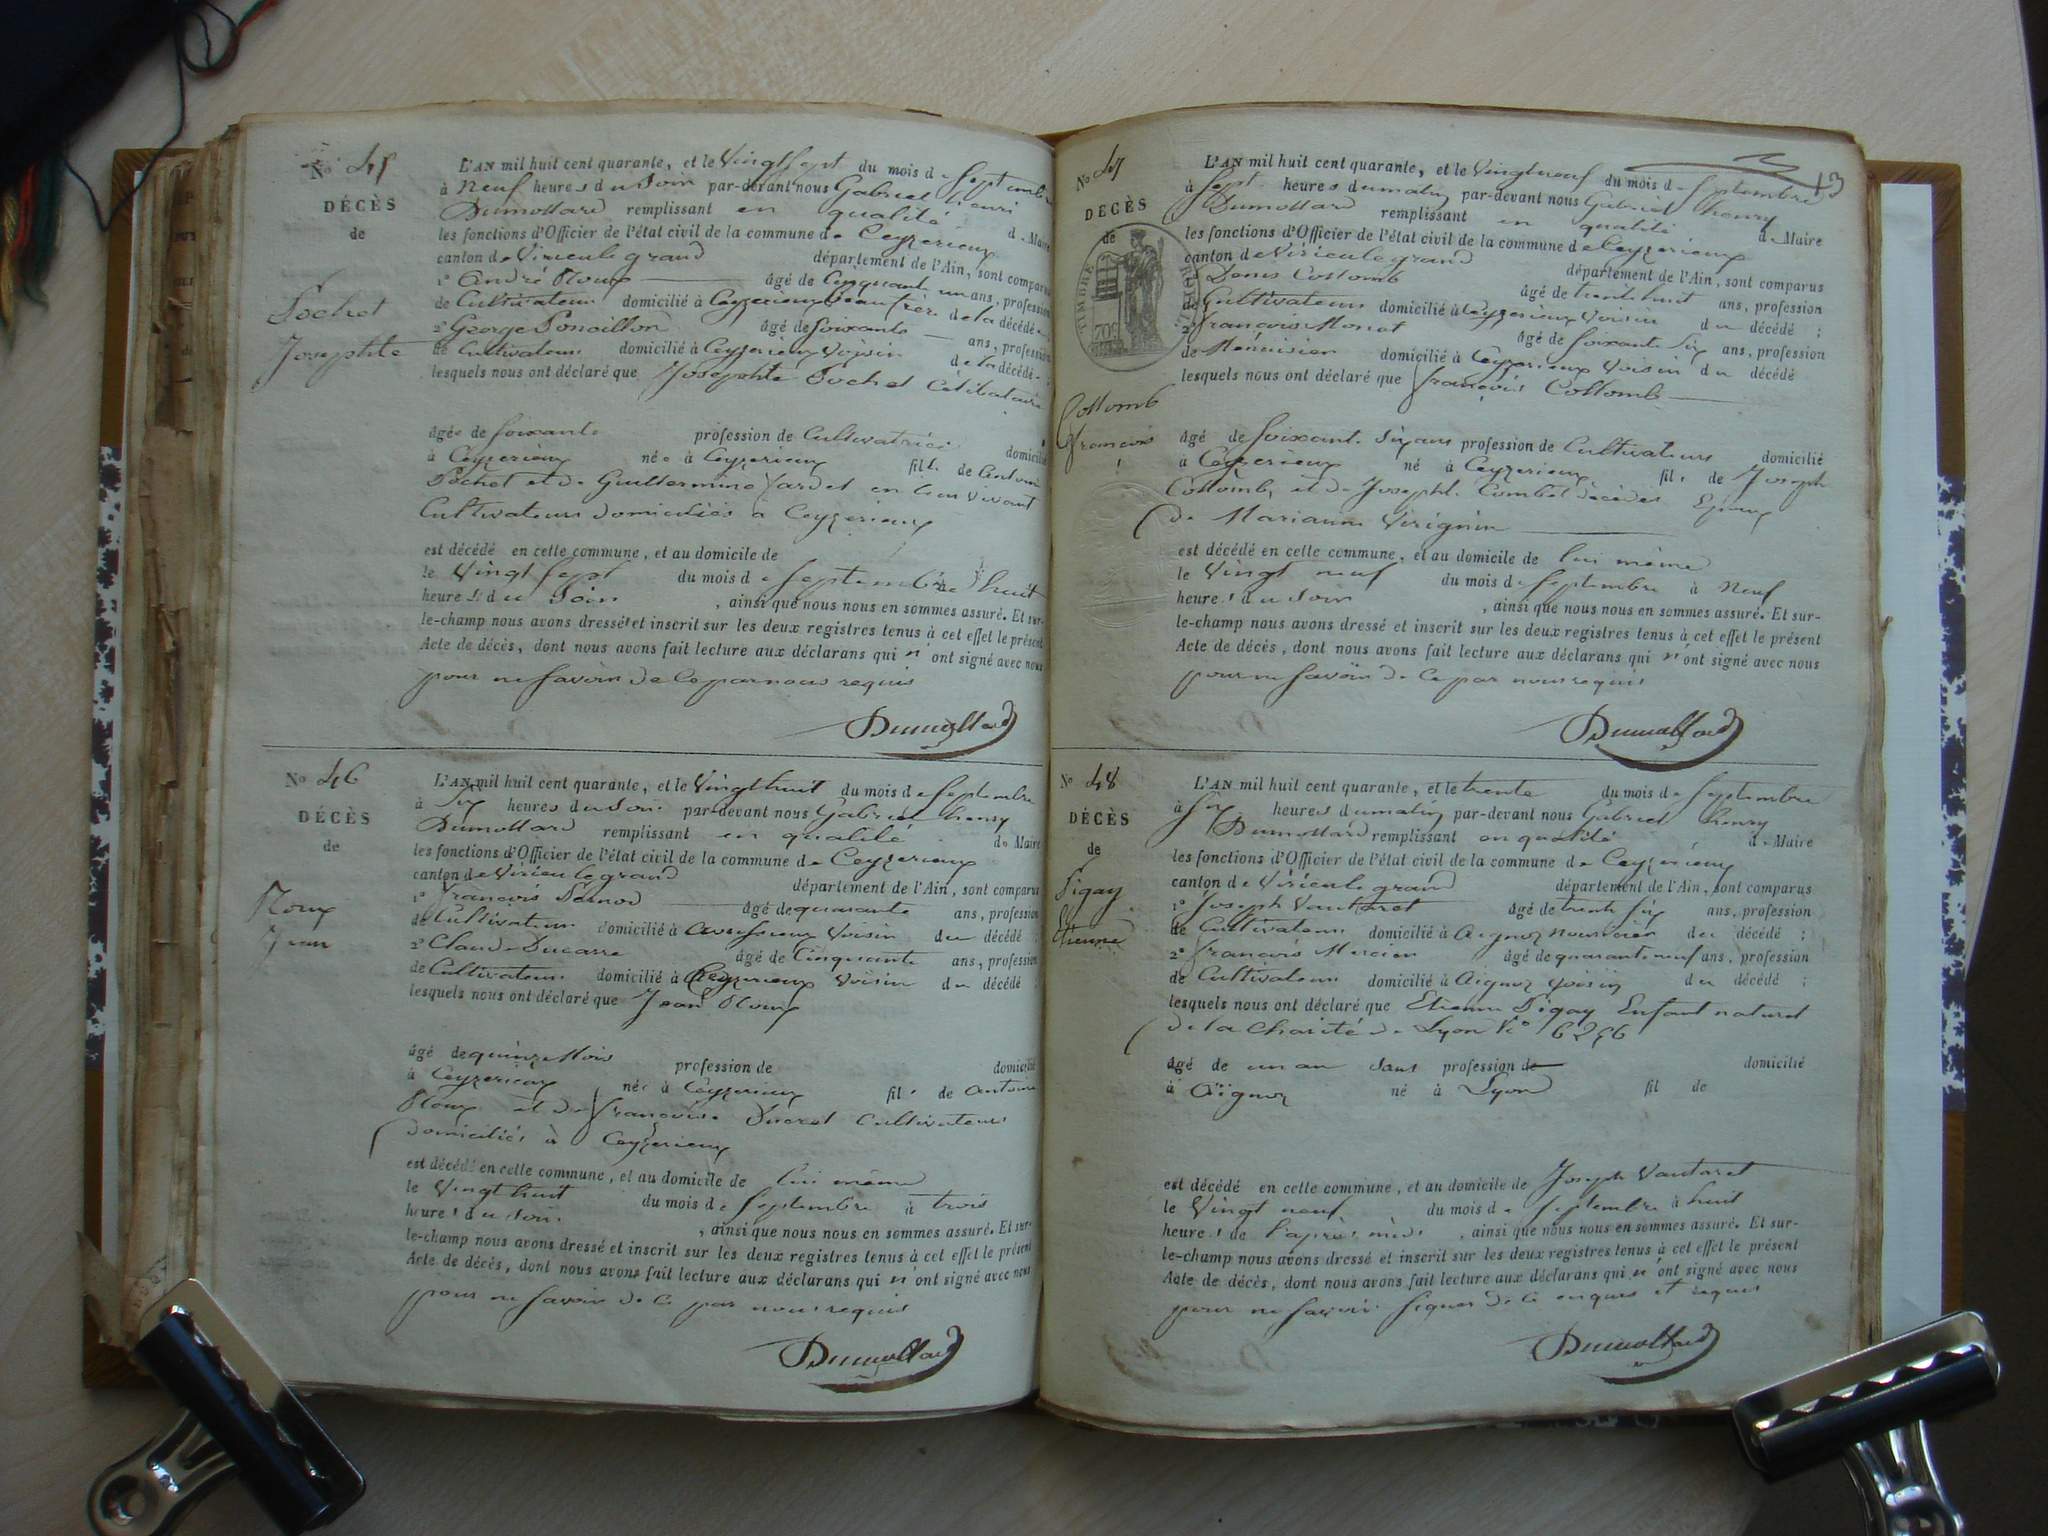 N° 45
DÉCÈS
de
Pochet
Josephte
L'AN mil huit cent quarante, et le Vingt sept du mois de Septembre
à Neuf heures du Soir par-devant nous Gabriel henri
Dumollard remplissant en qualité de Maire
les fonctions d'Officier de l'état civil de la commune de Ceyzerieux
canton de Virieu le grand département de l'Ain, sont comparus
1° André Roux âgé de Cinquante un ans, profession
de Cultivateur domicilié à Ceyzerieux beau frère de la décédée
2° George Poncillon âgé de Soixante ans, profession
de Cultivateur domicilié à Ceyzerieux Voisin de la décédée ;
lesquels nous ont déclaré que Josephte Pochet Célibataire
âgée de Soixante profession de Cultivatrice domicilié
à Ceyzerieux née à Ceyzerieux fille de
Pochet et de Guillermine Jardet en leur vivant
Cultivateurs domiciliés à Ceyzerieux
est décédé en cette commune, et au domicile de
le Vingt Sept du mois de Septembre huit
heures du Soir , ainsi que nous nous en sommes assuré. Et sur-
le-champ nous avons dressé et inscrit sur les deux registres tenus à cet effet le présent
Acte de décès, dont nous avons fait lecture aux déclarans qui n'ont signé avec nous
pour ne Savoir de Ce par nous requis
Dumollard
N° 46
DÉCÈS
de
Roux
Jean
L'AN mil huit cent quarante, et le Vingt huit du mois de Septembre
à Six heures du Soir par-devant nous Gabriel henry
Dumollard remplissant en qualité de Maire
les fonctions d'Officier de l'état civil de la commune de Ceyzerieux
canton de Virieu le grand département de l'Ain, sont comparus
1° François Pernod âgé de quarante ans, profession
de Cultivateur domicilié à Avrissieux Voisin du décédé ;
2° Claude Ducarre âgé de Cinquante ans, profession
de Cultivateur domicilié à Ceyzerieux Voisin du décédé ;
lesquels nous ont déclaré que Jean Roux
âgé de quinze Mois profession de domicilié
à Ceyzerieux né à Ceyzerieux fils de Antoine
Roux et de françoise Ducret Cultivateurs
domiciliés à Ceyzerieux
est décédé en cette commune, et au domicile de lui même
le Vingt huit du mois de Septembre à trois
heures du Soir , ainsi que nous nous en sommes assuré. Et sur-
le-champ nous avons dressé et inscrit sur les deux registres tenus à cet effet le présent
Acte de décès, dont nous avons fait lecture aux déclarans qui n'ont signé avec nous
pour ne Savoir de Ce par nous requis
Dumollard
13
N° 47
DÉCÈS
de
TIMBRE ROYAL
70c
Collomb
françois
L'AN mil huit cent quarante, et le Vingt neuf du mois de Septembre
à Sept heures du matin par-devant nous Gabriel henry
Dumollard remplissant en qualité de Maire
les fonctions d'Officier de l'état civil de la commune de Ceyzerieux
canton de Virieu le grand département de l'Ain, sont comparus
1° Denis Collomb âgé de trente huit ans, profession
de Cultivateur domicilié à Ceyzerieux Voisin du décédé ;
2° françois Monet âgé de Soixante Six ans, profession
de Menuisier domicilié à Ceyzerieux Voisin du décédé
lesquels nous ont déclaré que françois Collomb
âgé de Soixante Six ans profession de Cultivateur domicilié
à Ceyzerieux né à Ceyzerieux fils de Joseph
Collomb, et de Josephte Combet décédés Epoux
de Marianne Virignin
est décédé en cette commune, et au domicile de lui même
le Vingt neuf du mois de Septembre à Neuf
heures du Soir , ainsi que nous nous en sommes assuré. Et sur-
le-champ nous avons dressé et inscrit sur les deux registres tenus à cet effet le présent
Acte de décès, dont nous avons fait lecture aux déclarans qui n'ont signé avec nous
pour ne Savoir de Ce par nous requis
Dumollard
N° 48
DÉCÈS
de
Pigay
Etienne
L'AN mil huit cent quarante, et le trente du mois de Septembre
à Six heures du matin par-devant nous Gabriel henry
Dumollard remplissant en qualité de Maire
les fonctions d'Officier de l'état civil de la commune de Ceyzerieux
canton de Virieu le grand département de l'Ain, sont comparus
1° Joseph Vautaret âgé de trente Six ans, profession
de Cultivateur domicilié à Aignoz nourricier du décédé ;
2° françois Mercier âgé de quarante neuf ans, profession
de Cultivateur domicilié à Aignoz Voisin du décédé ;
lesquels nous ont déclaré que Etienne Pigay Enfant naturel
de la Charité de Lyon N°
âgé de un an Sans profession de domicilié
à Aignoz né à Lyon fil de
est décédé en cette commune, et au domicile de Joseph Vautaret
le Vingt neuf du mois de Septembre à huit
heures de l'après midi , ainsi que nous nous en sommes assuré. Et sur-
le-champ nous avons dressé et inscrit sur les deux registres tenus à cet effet le présent
Acte de décès, dont nous avons fait lecture aux déclarans qui n'ont signé avec nous
pour ne Savoir Signer de Ce enquis et requis
Dumollard